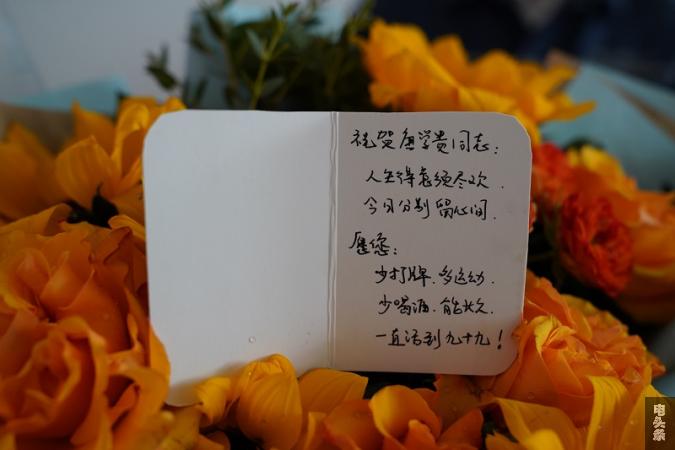 祝贺唐学贵同志:
人生得意须尽欢.
今日分别留心间.
愿您:
少打牌.多运动.
少喝酒.能长久.
一直活到九十九!
电头条